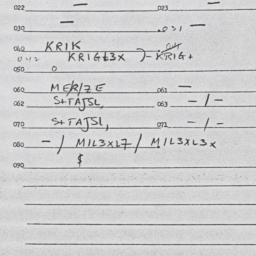 022 — 023
030 — .031 —
040 KRIK
042 KRIGL3X )- KRIG+
050 0
060 MER/ZE 061 —
062 S+TAJSL, 063 -/-
070 S+TAJSL, 071 -/-
080 -/ MIL3XL7/ MIL3XL3X
090 $